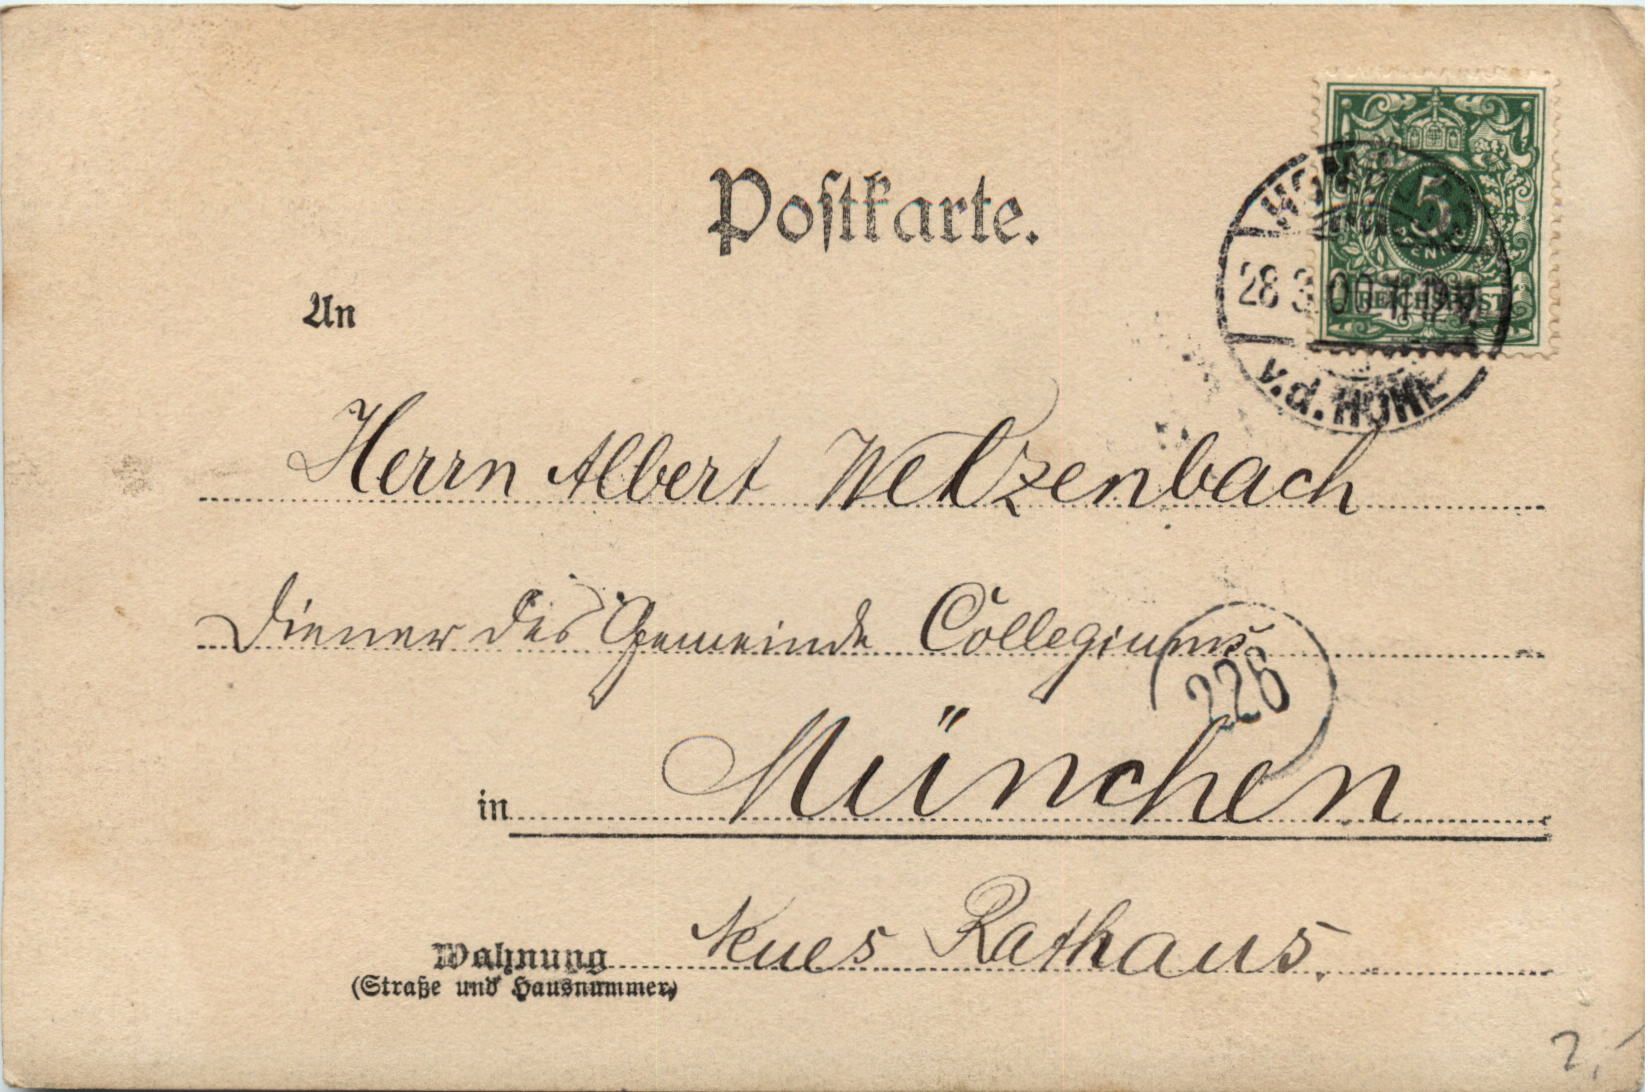 Postkarte.
5
REICHSPOST
28 3 00 11-12 V
v.d. HÖHE
An
Herrn Albert Welzenbach
Diener des Gemeinde Collegiums
228
in München
Neues Rathaus.
Wohnung
(Straße und Hausnummer)